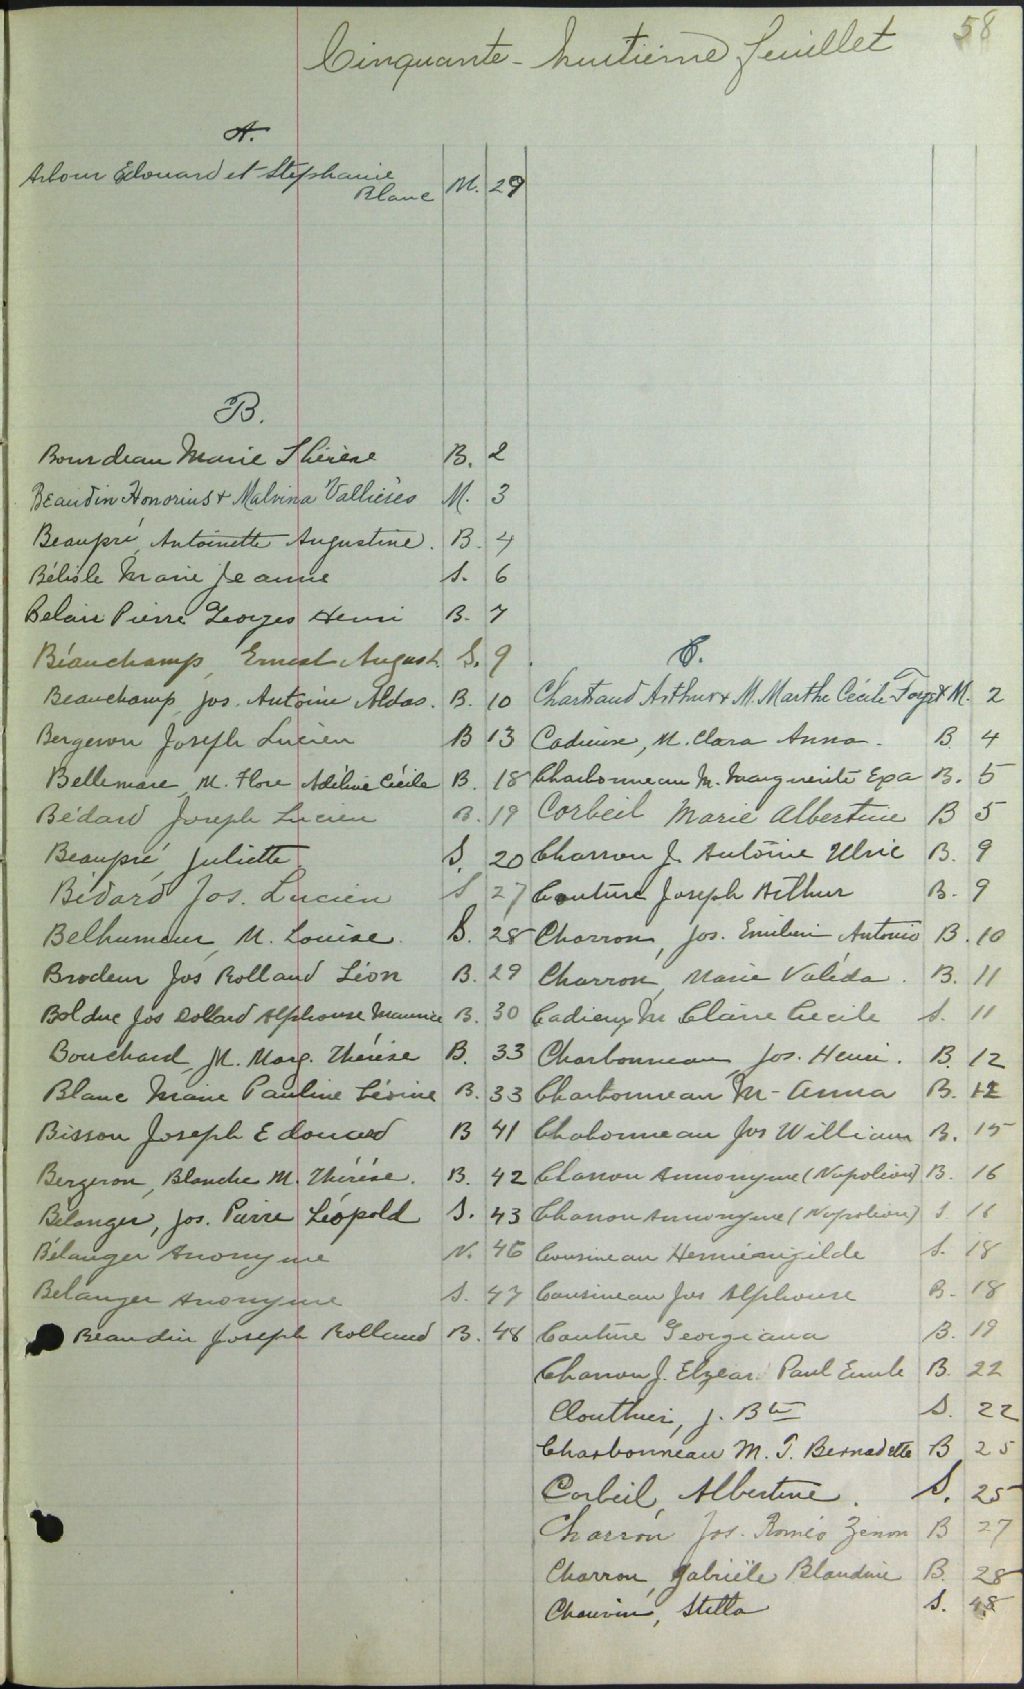 58
Cinquante-huitième feuillet
A.
Arbour Edouard et Stephanie
Blanc M. 29
B.
Bourdeau Marie Thérèse B. 2
Beaudin Honorius & Malvina Vallières M. 3
Beaupré, Antoinette Augustine. B. 4
Bélisle Marie Jeanne S. 6
Belair Pierre Georges Henri B. 7
Beauchamp, Ernest August. S. 9
Beauchamp, Jos. Antoine Aldas. B. 10
Bergeron Joseph Lucien B 13
Bellemare, M. Flore Adéline Cécile B. 18
Bédard Joseph Lucien B. 19
Beaupré, Juliette S. 20
Bédard Jos. Lucien S 27
Belhumeur, M. Louise. S. 28
Brodeur Jos Rolland Léon B. 29
Bolduc Jos Dollard Alphonse Maurice B. 30
Bouchard, M. Marg. Thérèse B. 33
Blanc Marie Pauline Lévine B. 33
Bisson Joseph Edouard B 41
Bergeron, Blanche M. Thérèse. B. 42
Bélanger, Jos. Pierre Léopold S. 43
Bélanger Anonyme N. 46
Belanger Anonyme S. 47
Beaudin Joseph Rolland B. 48
C.
Chartrand Arthur & M. Marthe Cécile M. 2
Cadieux, M. Clara Anna. B. 4
Charbonneau M. Marguerite Exa B. 5
Corbeil Marie Albertine B 5
Charron J. Antoine Ulric B. 9
Couture Joseph Arthur B. 9
Charron, Jos. Emilien Antonio B. 10
Charron, Marie Valéda. B. 11
Cadieux M Claire Cecile S. 11
Charbonneau, Jos. Henri. B. 12
Charbonneau M-Anna B. 12
Chabonneau Jos William B. 15
Charron Annonyme (Napoléon) B. 16
Charron Annonyme (Napoléon) S. 16
Cousineau Herménigilde S. 18
Cousineau Jos Alphonse B. 18
Couture Georgiana B. 19
Charron J. Elzear Paul Emile B. 22
Clouthier, J. Bte S. 22
Charbonneau M. T. Bernadette B 25
Corbeil, Albertine. S. 25
Charron Jos. Roméo Zénon B 27
Charron, Gabriële Blandine B. 28
Chauvin, Stella S. 48